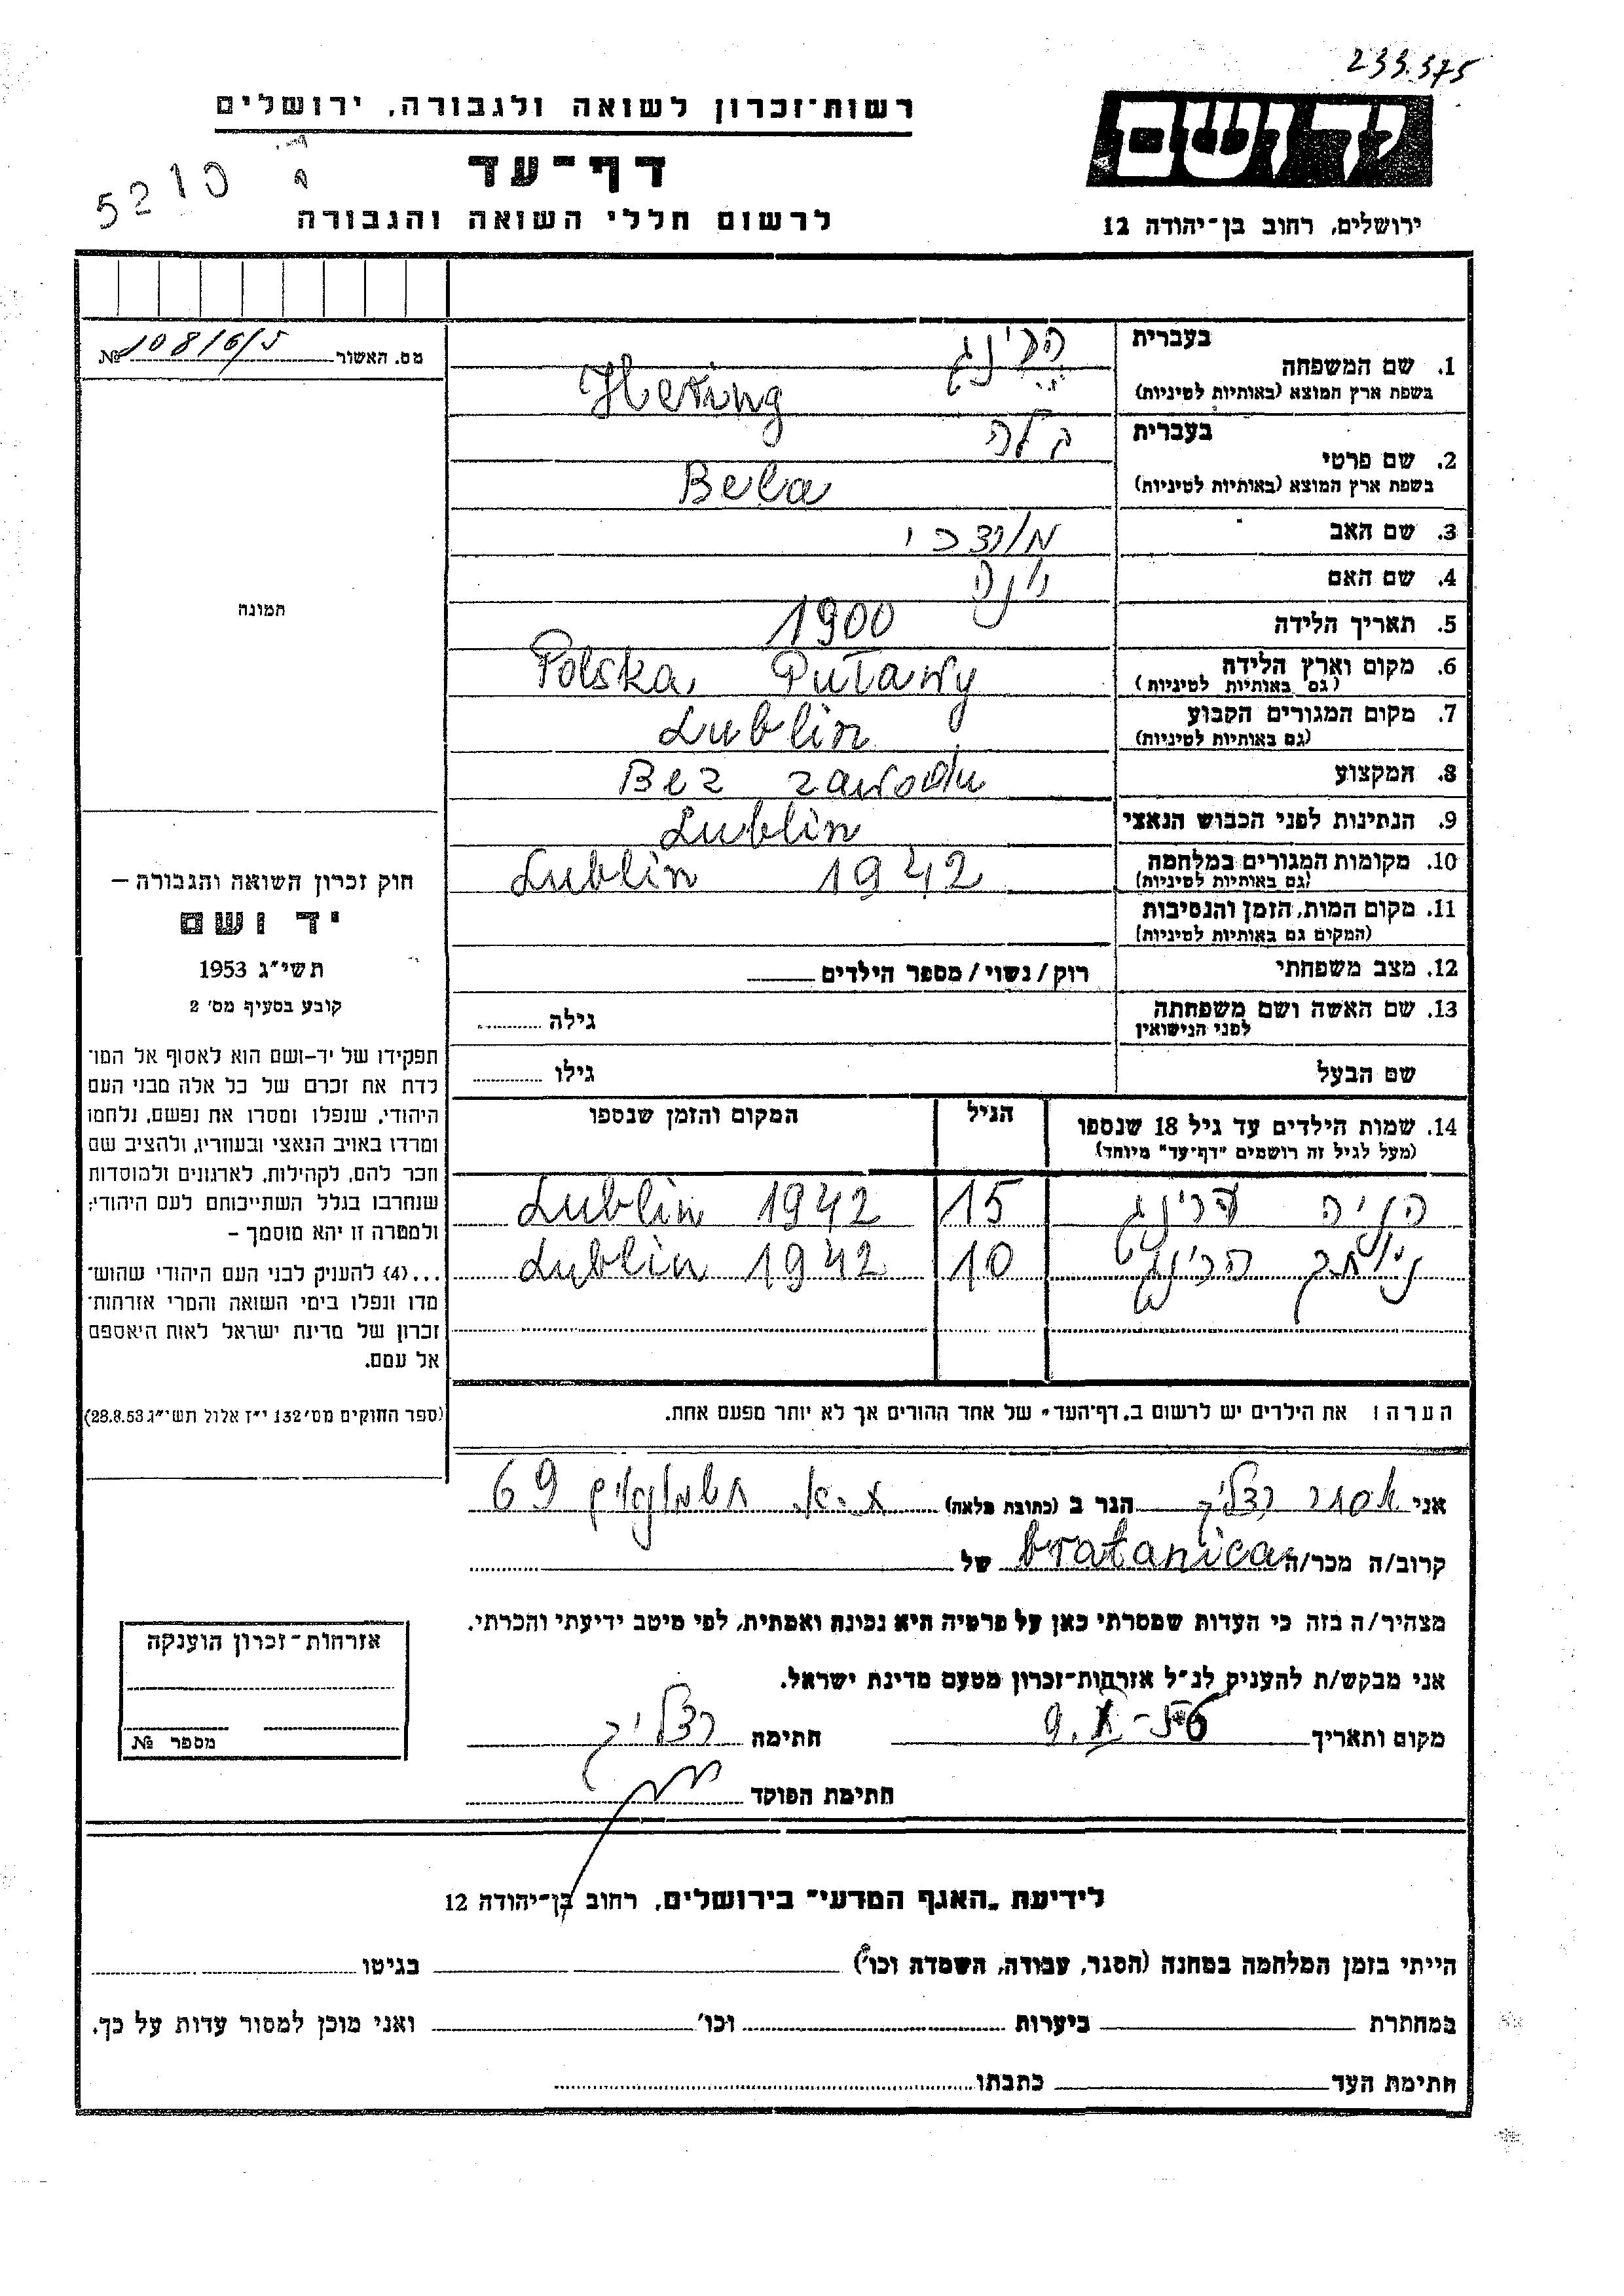 233.375
רשות-זכרון לשואה ולגבורה, ירושלים
יד ושם
דף-עד
5210
לרשום חללי השואה והגבורה
ירושלים, רחוב בן-יהודה 12
מס. האשור № 108/6/5
בעברית
הרינג
1. שם המשפחה
בשפת ארץ המוצא (באותיות לטיניות) Hering
בעברית
בלה
2. שם פרטי
בשפת ארץ המוצא (באותיות לטיניות) Bela
3. שם האב
4. שם האם
5. תאריך הלידה 1900
6. מקום וארץ הלידה Polska, Puławy
(גם באותיות לטיניות)
7. מקום המגורים הקבוע Lublin
(גם באותיות לטיניות)
8. המקצוע Bez zawodu
9. הנתינות לפני הכבוש הנאצי Lublin
10. מקומות המגורים במלחמה Lublin 1942
(גם באותיות לטיניות)
11. מקום המות, הזמן והנסיבות
(המקום גם באותיות לטיניות)
12. מצב משפחתי רוק/נשוי/מספר הילדים
13. שם האשה ושם משפחתה גילה
לפני הנישואין
שם הבעל גילו
14. שמות הילדים עד גיל 18 שנספו הגיל המקום והזמן שנספו
(מעל לגיל זה רושמים "דף-עד" מיוחד)
הניה הרינג 15 Lublin 1942
הרינג 10 Lublin 1942
הערה: את הילדים יש לרשום ב"דף-העד" של אחד ההורים אך לא יותר מפעם אחת.
התמונה
חוק זכרון השואה והגבורה –
יד ושם
תשי"ג 1953
קובע בסעיף מס' 2
תפקידו של יד-ושם הוא לאסוף אל המו-
לדת את זכרם של כל אלה מבני העם
היהודי, שנפלו ומסרו את נפשם, נלחמו
ומרדו באויב הנאצי ובעוזריו, ולהציב שם
וזכר להם, לקהילות, לארגונים ולמוסדות
שנחרבו בגלל השתייכותם לעם היהודי;
ולמטרה זו יהא מוסמך –
...(4) להעניק לבני העם היהודי שהוש-
מדו ונפלו בימי השואה והמרי אזרחות-
זכרון של מדינת ישראל לאות היאספם
אל עמם.
(ספר החוקים מס' 132 י"ז אלול תשי"ג 28.8.53)
אני אסתר רצליך הגר ב (כתובת מלאה) ת-א. חשמונאים 69
קרוב/ה מכר/ה bratanica של
מצהיר/ה בזה כי העדות שמסרתי כאן על פרטיה היא נכונה ואמתית, לפי מיטב ידיעתי והכרתי.
אני מבקש/ת להעניק לנ"ל אזרחות-זכרון מטעם מדינת ישראל.
מקום ותאריך חתימה רצליך
חתימת הפוקד
אזרחות-זכרון הוענקה
מספר №
לידיעת "האגף המדעי" בירושלים, רחוב בן-יהודה 12
הייתי בזמן המלחמה במחנה (הסגר, עבודה, השמדה וכו') בגיטו
במחתרת ביערות וכו' ואני מוכן למסור עדות על כך.
חתימת העד כתבתו